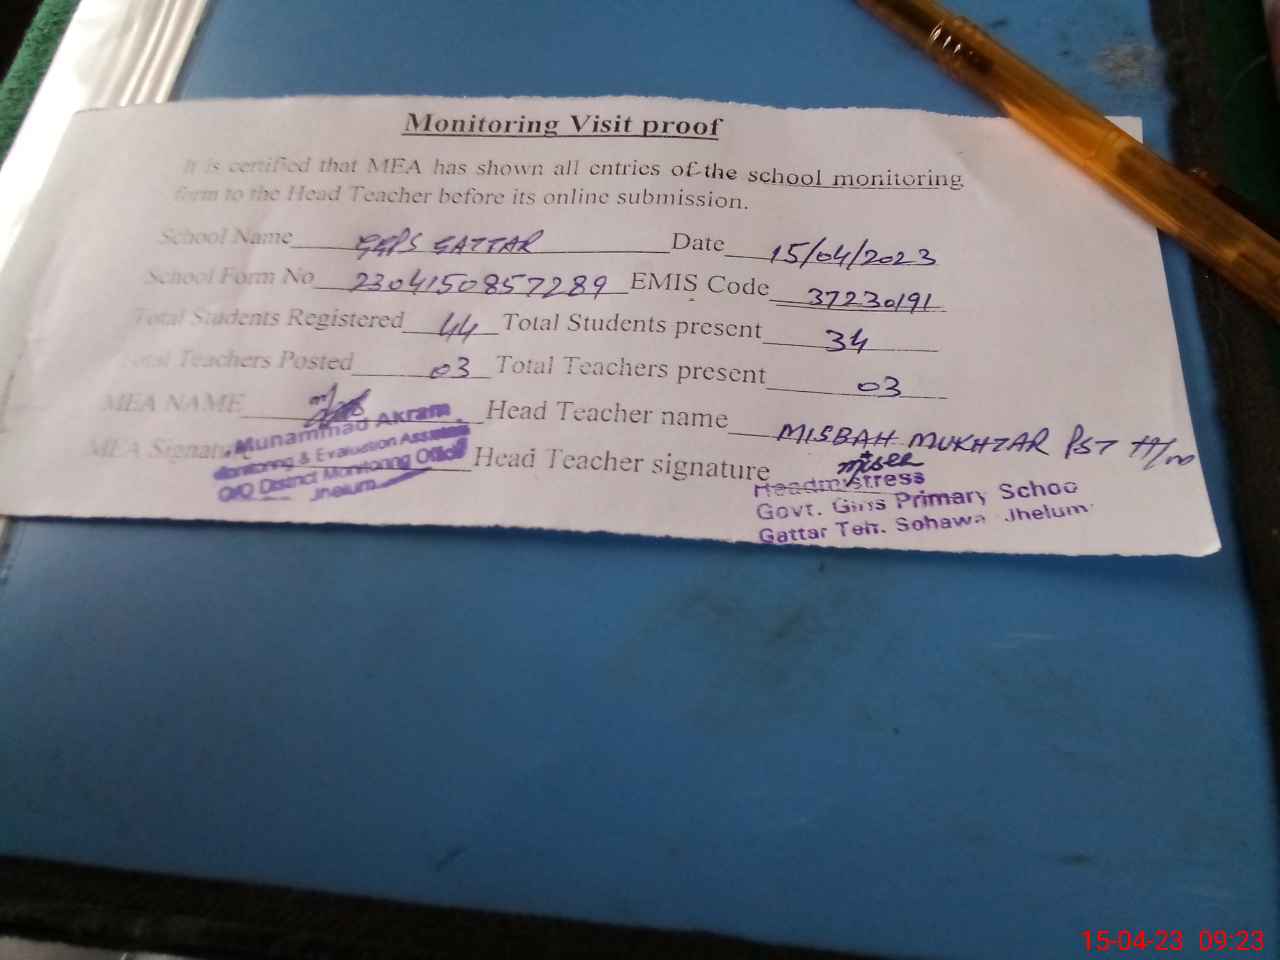 Monitoring Visit proof
It is certified that MEA has shown all entries of the school monitoring
form to the Head Teacher before its online submission.
School Name GGPS GATTAR Date 15/04/2023
School Form No 2304150857289 EMIS Code 37230191
Total Students Registered 44 Total Students present 34
Total Teachers Posted 03 Total Teachers present 03
MEA NAME Head Teacher name MISBAH MUKHTAR PST H/m
MEA Signature Head Teacher signature Misbah
Muhammad Akram
Monitoring & Evaluation Assistant
O/O District Monitoring Officer
Jhelum
Headmistress
Govt. Girls Primary Schoo
Gattar Teh. Sohawa Jhelum
15-04-23 09:23